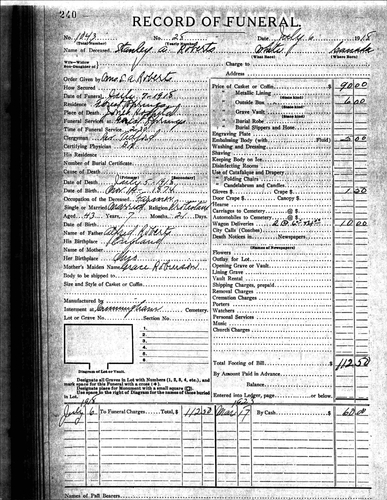 240
RECORD OF FUNERAL.
No. 1043 No. 25 Date July 6 1918
(Total Number) (Yearly Number)
Name of Deceased Stanley A. Roberts White Canada
(What Race) (Where Born)
Wife—Widow
Son-Daughter of
Charge to
Address
Order Given by Mrs S. A. Roberts
How Secured
Date of Funeral July 7-1918
Residence
Place of Death
Funeral Services at
Time of Funeral Service 2:30
Clergyman
Certifying Physician
His Residence
Number of Burial Certificate
Cause of Death
Date of Death July 5-1918
Date of Birth Nov 14-1874
Occupation of the Deceased Farmer
Single or Married Married Religion Christian
Aged 43 Years, 7 Months, 21 Days.
Date of Birth
Name of Father Alfred Roberts
His Birthplace England
Name of Mother
Her Birthplace Ohio
Mother's Maiden Name Grace Robinson
Body to be Shipped to
Size and Style of Casket or Coffin
Manufactured by
Interment at Cunningham Cemetery.
Lot or Grave No. Section No.
1.
2.
3.
4.
5.
6.
7.
8.
Diagram of Lot or Vault.
Designate all Graves in Lot with Numbers (1, 2, 3, 4, etc.), and
mark space for this Funeral with a cross
Designate place for Monument with a small square
Use space to the right of Diagram for the names of those buried
in Lot.
Price of Casket or Coffin $ 90.00
Metallic Lining
Outside Box 6.00
Grave Vault
Burial Robe
Burial Slippers and Hose
Engraving Plate
Embalming Body (with Fluid) 5.00
Washing and Dressing
Shaving
Keeping Body on Ice
Disinfecting Rooms
Use of Catafalque and Drapery
" Folding Chairs
" Candelabrum and Candles
Gloves $ Chairs $ 1.50
Door Crape $ Canopy $
Hearse
Carriages to Cemetery @ $
Automobiles to Cemetery @ $
Wagon Deliveries 10.00
City Calls (Coaches)
Death Notices in Newspapers
(Names of Newspapers)
Flowers
Outlay for Lot
Opening Grave or Vault
Lining Grave
Vault Rental
Shipping Charges, prepaid
Removal Charges
Cremation Charges
Porters
Watchers
Personal Services
Music
Church Charges
Total Footing of Bill $ 112.50
By Amount Paid in Advance
Balance
Entered into Ledger, page or below.
1918
July 6 To Funeral Charges Total, $ 112.50 Mar 17 By Cash $ 60.00
Names of Pall Bearers